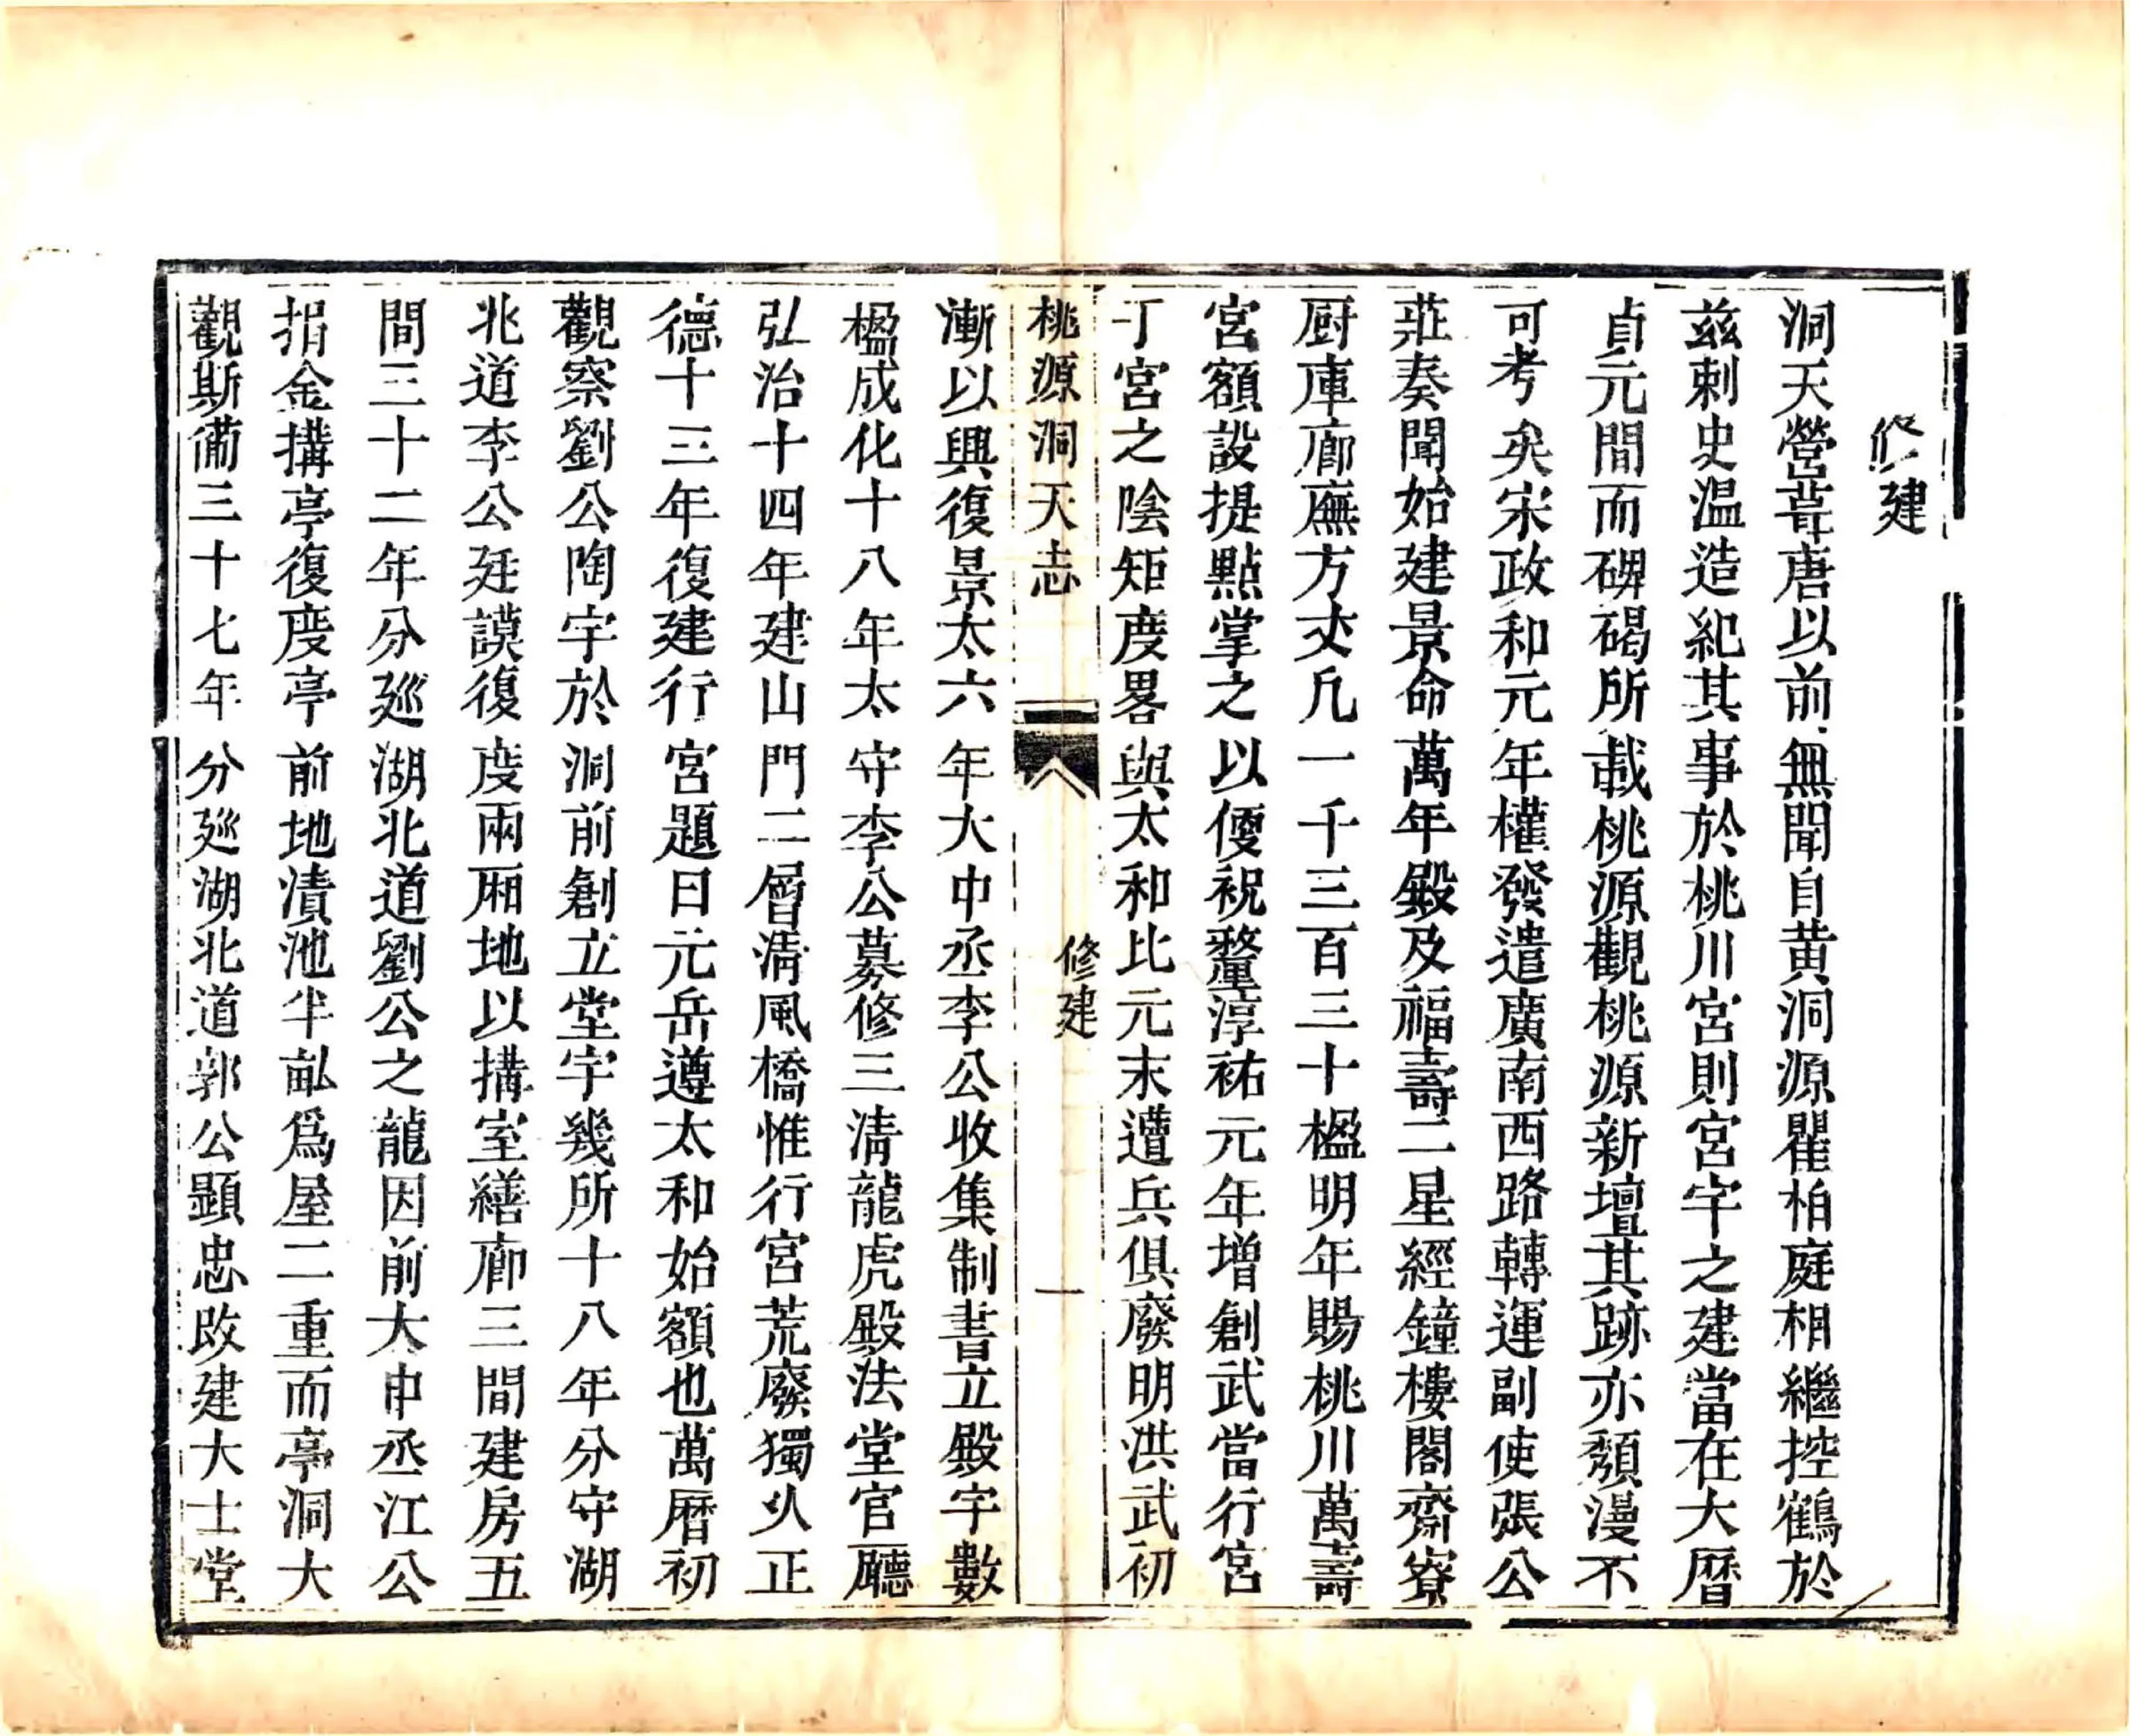 修建
洞天營葺唐以前無聞自黄洞源瞿柏庭相繼控鶴於
兹刺史温造紀其事於桃川宮則宮宇之建當在大曆
貞元間而碑碣所載桃源觀桃源新壇其跡亦頽漫不
可考矣宋政和元年權發遣廣南西路轉運副使張公
莊奏聞始建景命萬年殿及福壽二星經鐘樓閣齋寮
厨庫廊廡方丈凡一千三百三十楹明年賜桃川萬壽
宮額設提點掌之以便祝釐淳祐元年增創武當行宮
于宮之陰矩度畧與太和比元末遭兵俱廢明洪武初
桃源洞天志
修建
一
漸以興復景太六年大中丞李公收集制書立殿宇數
楹成化十八年太守李公募修三清龍虎殿法堂官廳
弘治十四年建山門二層清風橋惟行宮荒廢獨乆正
德十三年復建行宮題曰元岳遵太和始額也萬曆初
觀察劉公陶宇於洞前創立堂宇幾所十八年分守湖
北道李公廷謨復度兩厢地以搆室繕廊三間建房五
間三十二年分廵湖北道劉公之龍因前大中丞江公
捐金搆亭復度亭前地漬池半畝爲屋二重而亭洞大
觀斯備三十七年分廵湖北道郭公顯忠改建大士堂